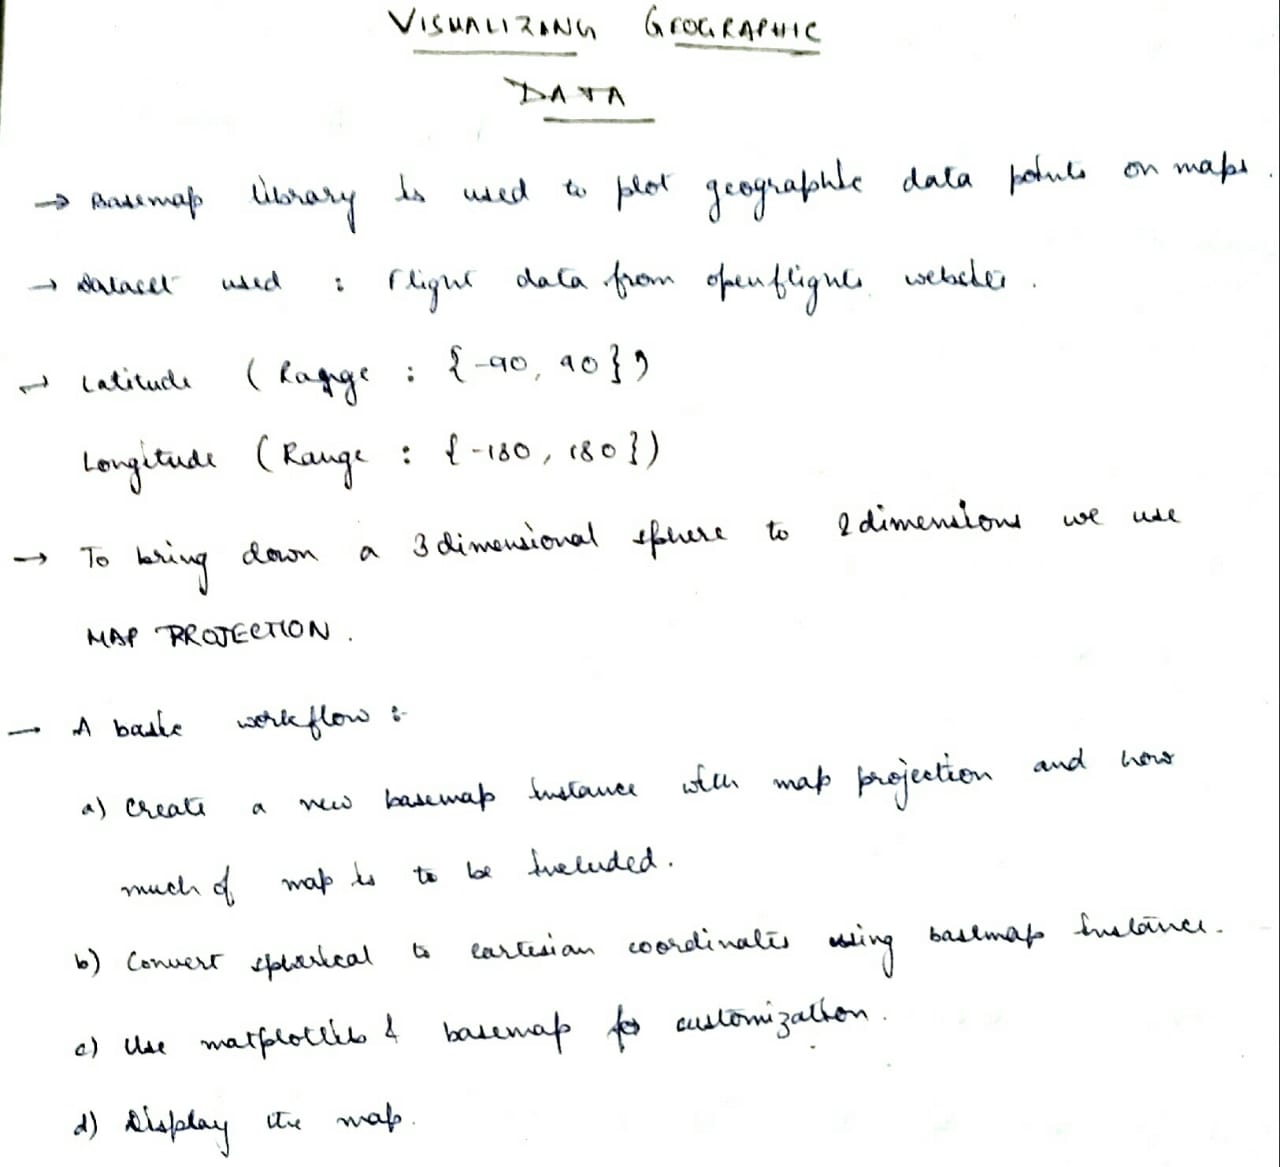 VISUALIZING GEOGRAPHIC
DATA
→ Basemap library is used to plot geographic data points on maps.
→ Dataset used : Flight data from openflights website.
→ Latitude (Range : {-90, 90})
Longitude (Range : {-180, 180})
→ To bring down a 3 dimensional sphere to 2 dimensions we use
MAP PROJECTION.
— A basic workflow :-
a) Create a new basemap instance with map projection and how
much of map is to be included.
b) Convert spherical to cartesian coordinates using basemap instance.
c) Use matplotlib & basemap for customization.
d) Display the map.